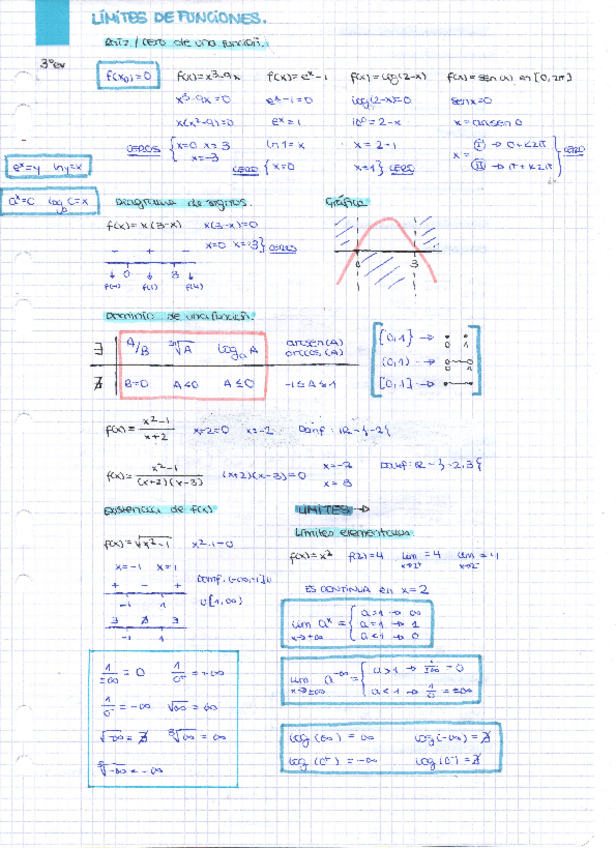 LÍMITES DE FUNCIONES.
Raíz / cero de una función.
3ºev
f(x₀)=0 f(x)=x³-9x f(x)=eˣ-1 f(x)=log(2-x) f(x)=sen(x) en [0,2π]
x³-9x=0 eˣ-1=0 log(2-x)=0 senx=0
x(x²-9)=0 eˣ=1 10⁰=2-x x=arcsen 0
CEROS { x=0 x=3 x=-3 ln1=x x=2-1 x= I → 0+K2π
CERO { x=0 x=1 } CERO II → π+K2π } CERO
eˣ=y lny=x
aˣ=c logₐc=x
Diagrama de signos. Gráfica
f(x)=x(3-x) x(3-x)=0
x=0 x=3 } CEROS
- + -
0 3
f(-1) f(1) f(4)
0 3
Dominio de una función.
∃ A/B ²ⁿ√A logₐA arcsen(A) arccos(A)
∄ B=0 A<0 A≤0 -1≤A≤1
{0,1} → 0 1
(0,1) →
[0,1] →
f(x)= x²-1 / x+2 x+2=0 x=-2 Domf: R-{-2}
f(x)= x²-1 / (x+2)(x-3) (x+2)(x-3)=0 x=-2 x=3 Domf: R-{-2,3}
Existencia de f(x) LÍMITES →
Límites elementales.
f(x)=√x²-1 x²-1=0 f(x)=x² f(2)=4 lim x→2⁺ =4 lim x→2⁻ =4
x=-1 x=1
+ - + Domf: (-∞,-1]∪
-1 1 ∪[1,∞)
ES CONTINUA en x=2
∃ ∄ ∃
-1 1
lim x→+∞ aˣ = { a>1 → ∞ a=1 → 1 a<1 → 0
1/±∞ = 0 1/0⁺ = +∞
lim x→±∞ a^-∞ = { a>1 → 1/±∞ = 0 a<1 → 1/0 = ±∞
1/0⁻ = -∞ √∞ = ∞
√-∞ = ∄ ³√∞ = ∞
log(∞) = ∞ log(-∞) = ∄
log(0⁺) = -∞ log(0⁻) = ∄
³√-∞ = -∞